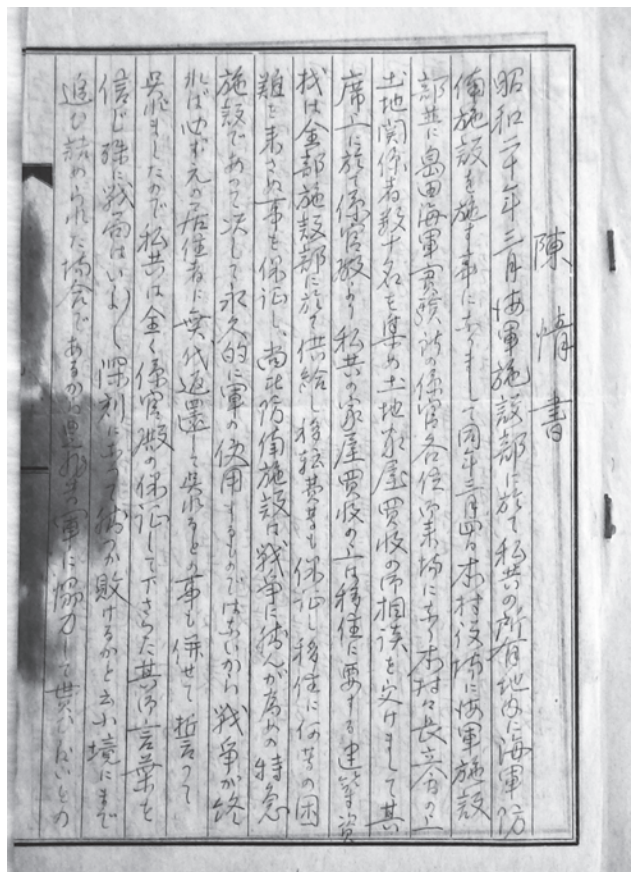 陳情書
昭和二十年三月海軍施設部に於て私共の所有地内に海軍防
備施設を施す事になりまして同年三月四日本村役場に海軍施設
部並に島田海軍実験所の係官各位御来場になり本村々長立会の上
土地関係者数十名を集め土地家屋買收の御相談を受けまして其
席上に於て係官殿より私共の家屋買收の上は移住に要する建築資
材は全部施設部に於て供給し移転費等も保証し移住に何等の困
難を来さぬ事を保証し、尚此防備施設は戦争に勝んが為めの特急
施設であって決して永久的に軍の使用するものではないから戦争が終
れば必ず元の居住者に無代返還して呉れるとの事も併せて誓って
呉れましたので私共は全く係官殿の保証して下さった其御言葉を
信じ殊に戦局はいよ〱深刻になって勝つか敗けるかと云ふ境にまで
追ひ詰められた場合であるから是非共軍に協力して貰ひたいとの